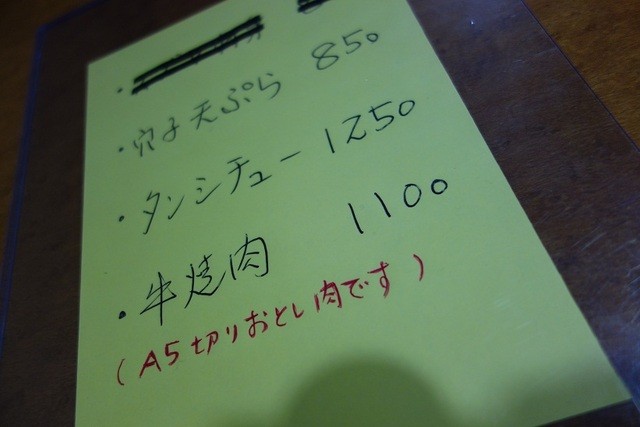 ・穴子天ぷら 850
・タンシチュー 1250
・牛焼肉 1100
(A5切りおとし肉です)